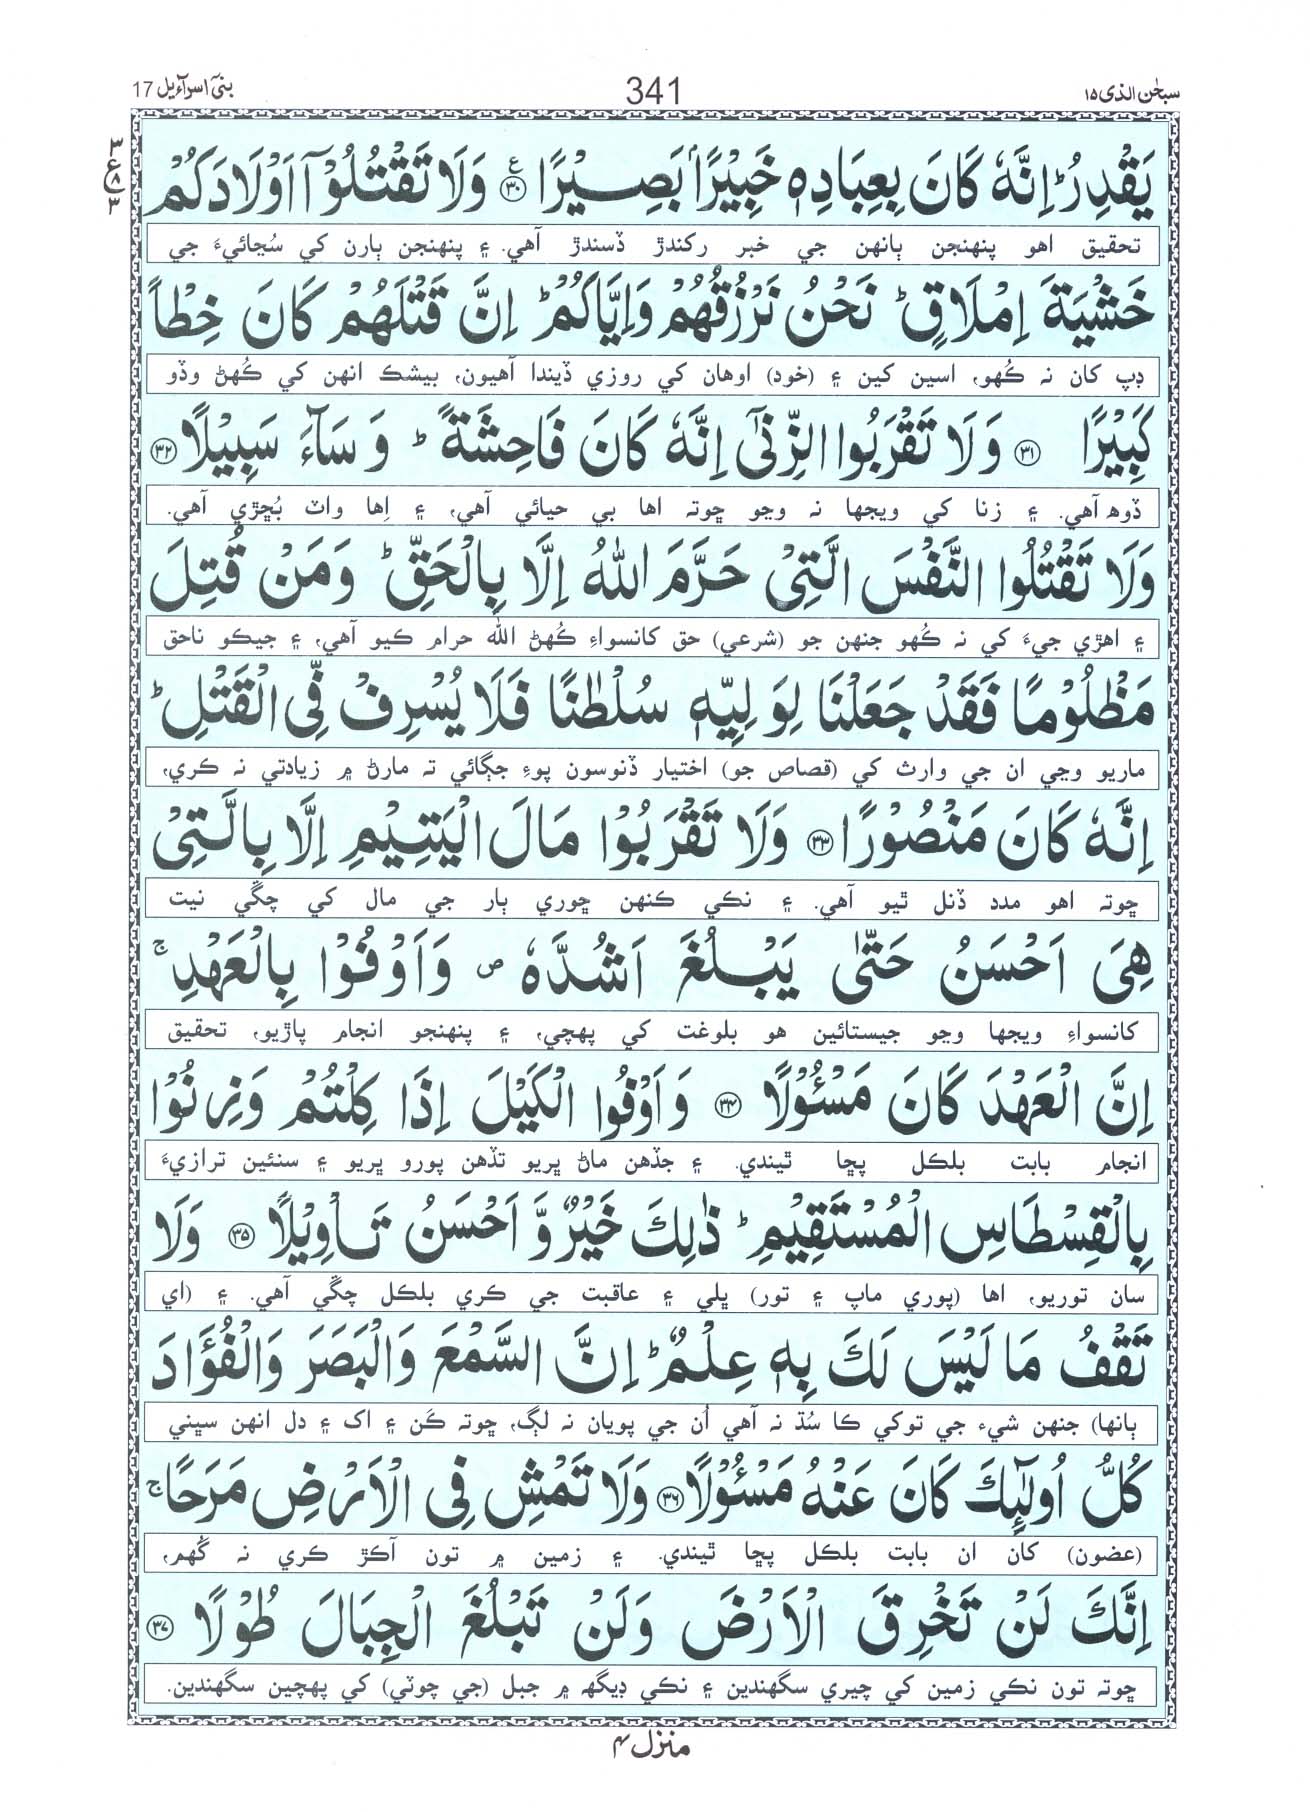 سبحٰن الذی ۱۵
341
بنیٓ اسرآءیل 17
یَقْدِرُ ؕ اِنَّهٗ كَانَ بِعِبَادِهٖ خَبِیْرًۢا بَصِیْرًا ۝۳۰ ع وَلَا تَقْتُلُوْۤا اَوْلَادَكُمْ
۳ ع ۸ ۳
تحقيق اھو پنھنجن ٻانھن جي خبر رکندڙ ڏسندڙ آھي. ۽ پنھنجن ٻارن کي سُڃائيءَ جي
خَشْیَةَ اِمْلَاقٍ ؕ نَحْنُ نَرْزُقُهُمْ وَاِیَّاكُمْ ؕ اِنَّ قَتْلَهُمْ كَانَ خِطْاً
ڊپ کان نہ ڪُھو، اسين کين ۽ (خود) اوھان کي روزي ڏيندا آھيون، بيشڪ انھن کي ڪُھڻ وڏو
كَبِیْرًا ۝۳۱ وَلَا تَقْرَبُوا الزِّنٰۤی اِنَّهٗ كَانَ فَاحِشَةً ؕ وَسَآءَ سَبِیْلًا ۝۳۲
ڏوھ آھي. ۽ زنا کي ويجھا نہ وڃو ڇوتہ اھا بي حيائي آھي، ۽ اِھا واٽ بُڇڙي آھي.
وَلَا تَقْتُلُوا النَّفْسَ الَّتِیْ حَرَّمَ اللّٰهُ اِلَّا بِالْحَقِّ ؕ وَمَنْ قُتِلَ
۽ اھڙي جيءَ کي نہ ڪُھو جنھن جو (شرعي) حق کانسواءِ ڪُھڻ الله حرام ڪيو آھي، ۽ جيڪو ناحق
مَظْلُوْمًا فَقَدْ جَعَلْنَا لِوَلِیِّهٖ سُلْطٰنًا فَلَا یُسْرِفْ فِّی الْقَتْلِ ؕ
ماريو وڃي ان جي وارث کي (قصاص جو) اختيار ڏنوسون پوءِ جڳائي تہ مارڻ ۾ زيادتي نہ ڪري،
اِنَّهٗ كَانَ مَنْصُوْرًا ۝۳۳ وَلَا تَقْرَبُوْا مَالَ الْیَتِیْمِ اِلَّا بِالَّتِیْ
ڇوتہ اھو مدد ڏنل ٿيو آھي. ۽ نڪي ڪنھن ڇوري ٻار جي مال کي چڱي نيت
هِیَ اَحْسَنُ حَتّٰی یَبْلُغَ اَشُدَّهٗ ص وَاَوْفُوْا بِالْعَهْدِ ج
کانسواءِ ويجھا وڃو جيستائين ھو بلوغت کي پھچي، ۽ پنھنجو انجام پاڙيو، تحقيق
اِنَّ الْعَهْدَ كَانَ مَسْئُوْلًا ۝۳۴ وَاَوْفُوا الْكَیْلَ اِذَا كِلْتُمْ وَزِنُوْا
انجام بابت بلڪل پڇا ٿيندي. ۽ جڏھن ماڻ ڀريو تڏھن پورو ڀريو ۽ سنئين ترازيءَ
بِالْقِسْطَاسِ الْمُسْتَقِیْمِ ؕ ذٰلِكَ خَیْرٌ وَّاَحْسَنُ تَاْوِیْلًا ۝۳۵ وَلَا
سان توريو، اھا (پوري ماپ ۽ تور) ڀلي ۽ عاقبت جي ڪري بلڪل چڱي آھي. ۽ (اي
تَقْفُ مَا لَیْسَ لَكَ بِهٖ عِلْمٌ ؕ اِنَّ السَّمْعَ وَالْبَصَرَ وَالْفُؤَادَ
ٻانھا) جنھن شيء جي توکي ڪا سُڌ نہ آھي اُن جي پويان نہ لڳ، ڇوتہ ڪَن ۽ اک ۽ دل انھن سڀني
كُلُّ اُولٰٓئِكَ كَانَ عَنْهُ مَسْئُوْلًا ۝۳۶ وَلَا تَمْشِ فِی الْاَرْضِ مَرَحًا ج
(عضون) کان ان بابت بلڪل پڇا ٿيندي. ۽ زمين ۾ تون آڪڙ ڪري نہ گُھم،
اِنَّكَ لَنْ تَخْرِقَ الْاَرْضَ وَلَنْ تَبْلُغَ الْجِبَالَ طُوْلًا ۝۳۷
ڇوتہ تون نڪي زمين کي چيري سگھندين ۽ نڪي ڊيگھ ۾ جبل (جي چوٽي) کي پھچين سگھندين.
منزل ۴